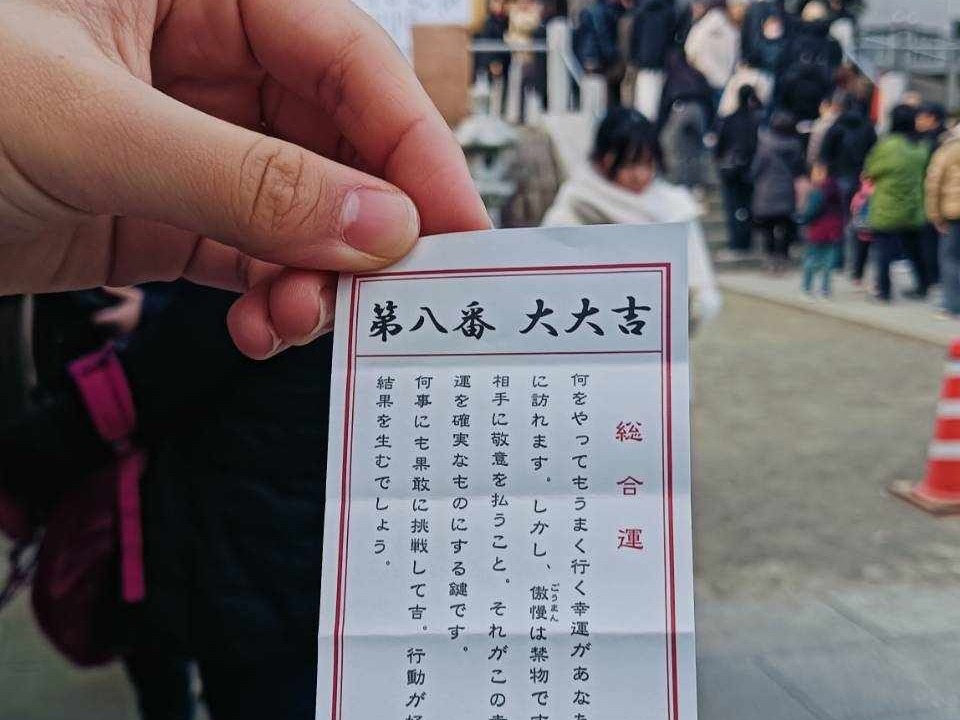 第八番 大大吉
総合運
何をやってもうまく行く幸運があなた
に訪れます。しかし、傲慢は禁物です
ごうまん
相手に敬意を払うこと。それがこの幸
運を確実なものにする鍵です。
何事にも果敢に挑戦して吉。行動が好
結果を生むでしょう。